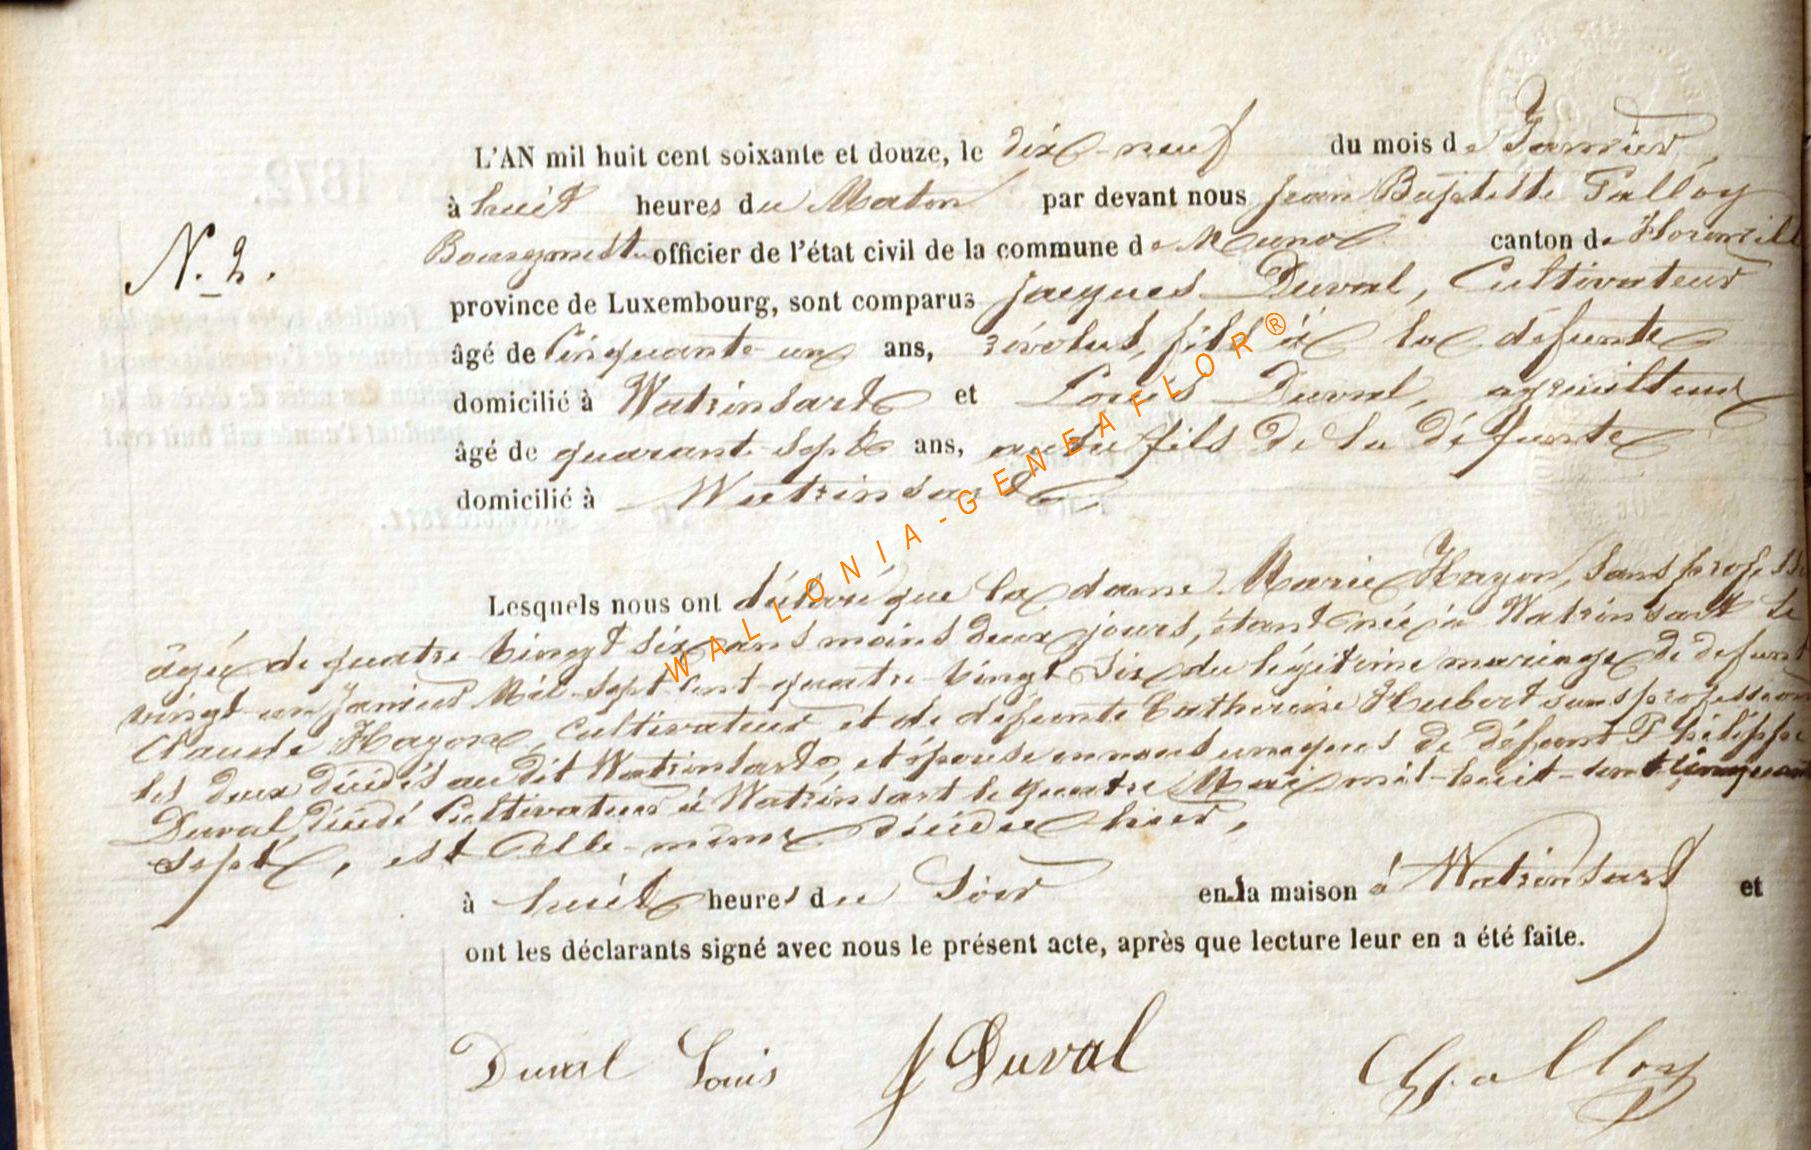 L'AN mil huit cent soixante et douze, le dix-neuf du mois de Janvier,
à huit heures du Matin par devant nous Jean Baptiste Palloy
N. 2.
Bourgmestre officier de l'état civil de la commune de Muno canton de Florenvill
province de Luxembourg, sont comparus Jacques Duval, Cultivateur
âgé de Cinquante-un ans, révolus, fils à la défunte
domicilié à Watrinsart et Louis Duval, agriculteur
âgé de quarante-sept ans, aussi fils de la défunte
domicilié à Watrinsart
Lesquels nous ont déclaré que la dame Marie Hazon, sans profess
âgée de quatre vingt six ans moins deux jours, étant née à Watrinsart le
vingt-un Janvier Mil-sept-cent-quatre-vingt Six du légitime mariage de défunt
Claude Hazon, Cultivateur et de défunte Catherine Hubert sans profession
les deux décédés au dit Watrinsart, et épouse en noces uniques de défunt Philippe
Duval, décédé Cultivateur à Watrinsart le quatre Mai mil-huit-cent-cinquante
sept, est Elle-même décédée hier,
à huit heures du Soir en la maison à Watrinsart et
ont les déclarants signé avec nous le présent acte, après que lecture leur en a été faite.
Duval Louis J Duval Palloy
WALLONIA-GENEAFLOR®